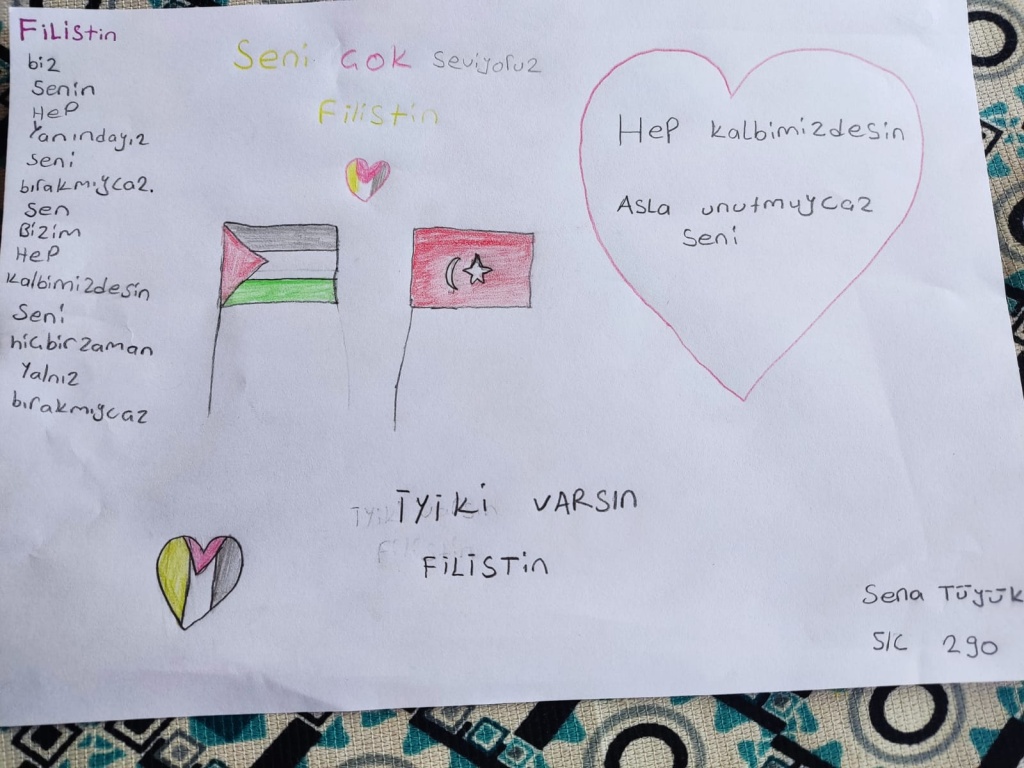 Filistin
biz
Senin
Hep
Yanındayız
seni
bırakmıycaz.
Sen
Bizim
Hep
kalbimizdesin
Seni
hiçbirzaman
Yalnız
bırakmıycaz
Seni çok seviyoruz
Filistin
Hep kalbimizdesin
Asla unutmuycaz
Seni
İyiki VARSIN
FİLİSTİN
Sena Tüyük
5/C 290